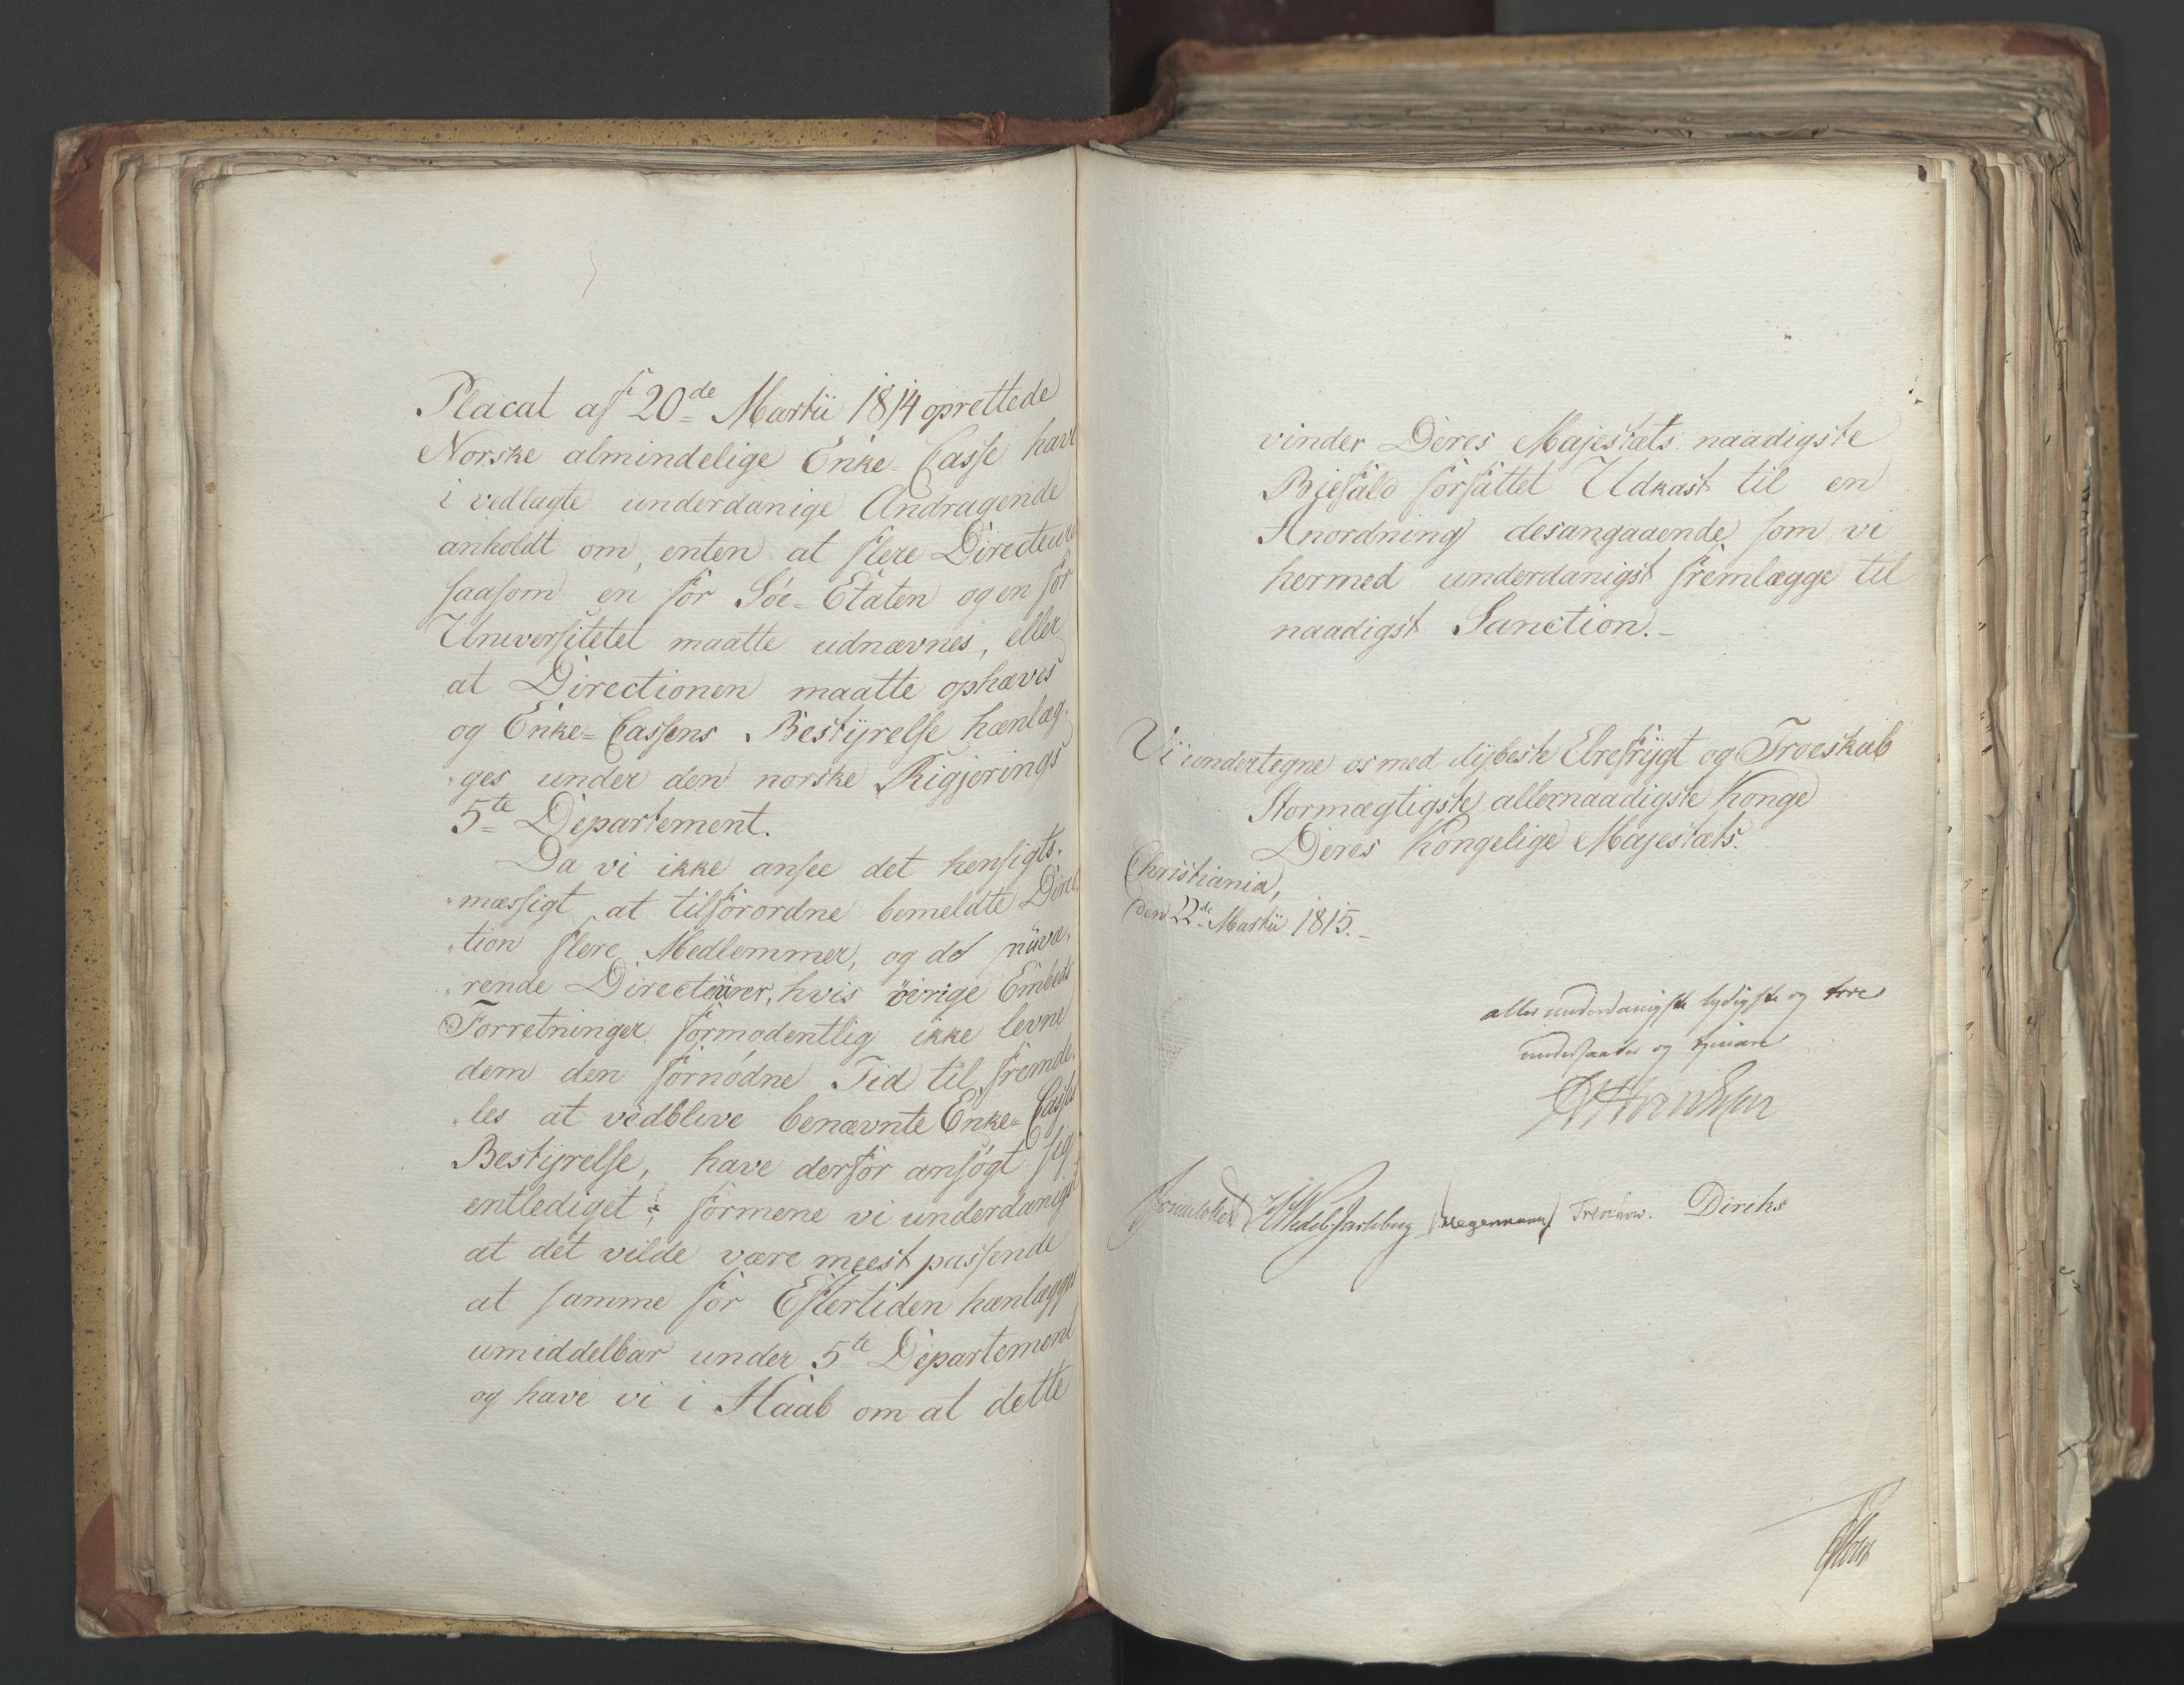 Placat af 20de Martii 1814 oprettede
Norske almindelige Enke-Casse have
i vedlagte underdanige Andragende
anholdt om, enten at flere Directeurer
saasom en for Søe-Etaten og en for
Universitetet maatte udnævnes, eller
at Directionen maatte ophæves
og Enke-Cassens Bestÿrelse henlæg-
ges under den norske Rigjerings
5te Departement.
Da vi ikke ansee det hensigts-
mæssigt at tilforordne bemeldte Direc
tion flere Medlemmer, og de nüvæ-
rende Directeürer, hvis øvrige Embeds
Forretninger formodentlig ikke levne
dem den fornødne Tid til fremde-
les at vedblive benævnte Enke-Casses
Bestÿrelse, have derfor ansøgt sig
entlediget; formene vi underdanigst
at det vilde være meest passende
at samme for Eftertiden henlægges
umiddelbar under 5te Departement
og have vi i Haab om at dette
vinder Deres Majestæts naadigste
Biefald forfattet Udkast til en
Anordning desangaaende som vi
hermed underdanigst fremlægge til
naadigst Sanction.-
Vi undertegne os med dÿbeste Ehrefrÿgt og Troeskab
Stormægtigste allernaadigste Konge
Deres Kongelige Majestæts.
Christiania,
den 22de Martii 1815.-
allerunderdanigste lydigste og troe
undersaatter og tjenere
Sommerhielm HWedel Jarlsberg Hegermann Treschow. Diriks